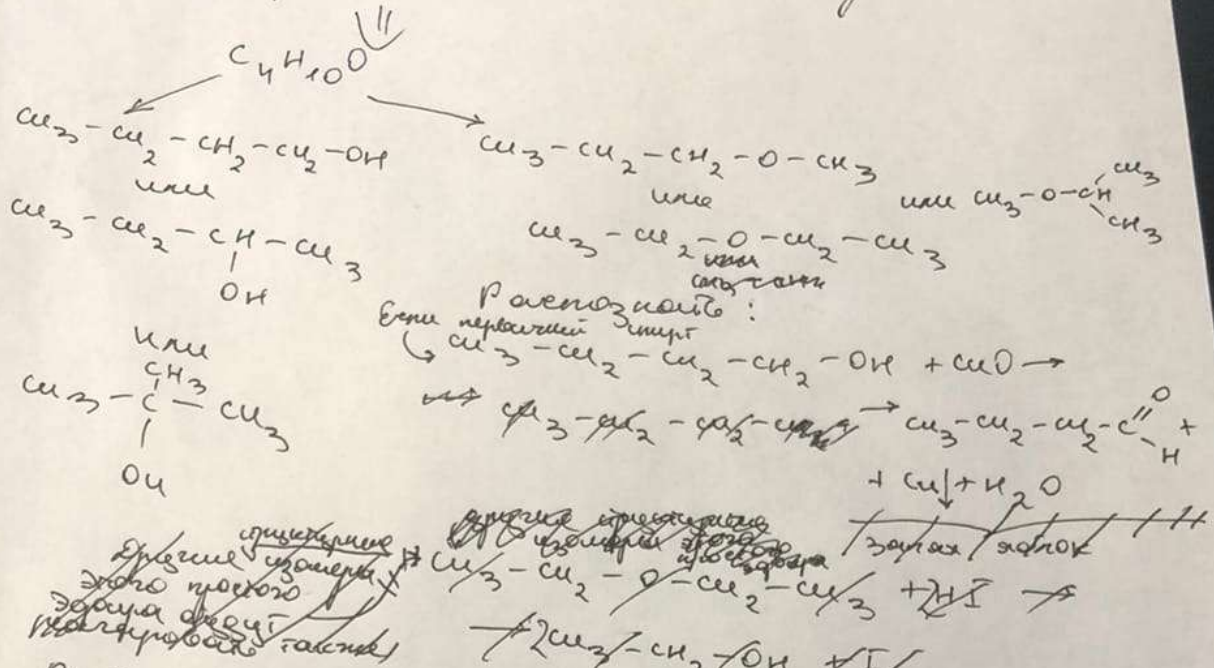 C₄H₁₀O
CH₃ – CH₂ – CH₂ – CH₂ – OH
или
CH₃ – CH₂ – CH – CH₃
|
OH
или
CH₃
CH₃ – C – CH₃
|
OH
CH₃ – CH₂ – CH₂ – O – CH₃
или
CH₃ – CH₂ – O – CH₂ – CH₃
или
или CH₃ – O – CH
CH₃
CH₃
Распознать:
Если первичный спирт
CH₃ – CH₂ – CH₂ – CH₂ – OH + CuO →
CH₃ – CH₂ – CH₂ –
→ CH₃ – CH₂ – CH₂ – C
O
H
+
+ Cu↓ + H₂O
запах яблок
другие
изомеры этого
простого
эфира
другие изомеры
этого простого
эфира будут
реагировать также
CH₃ – CH₂ – O – CH₂ – CH₃ + 2HI →
→ 2CH₃ – CH₂ – OH + I